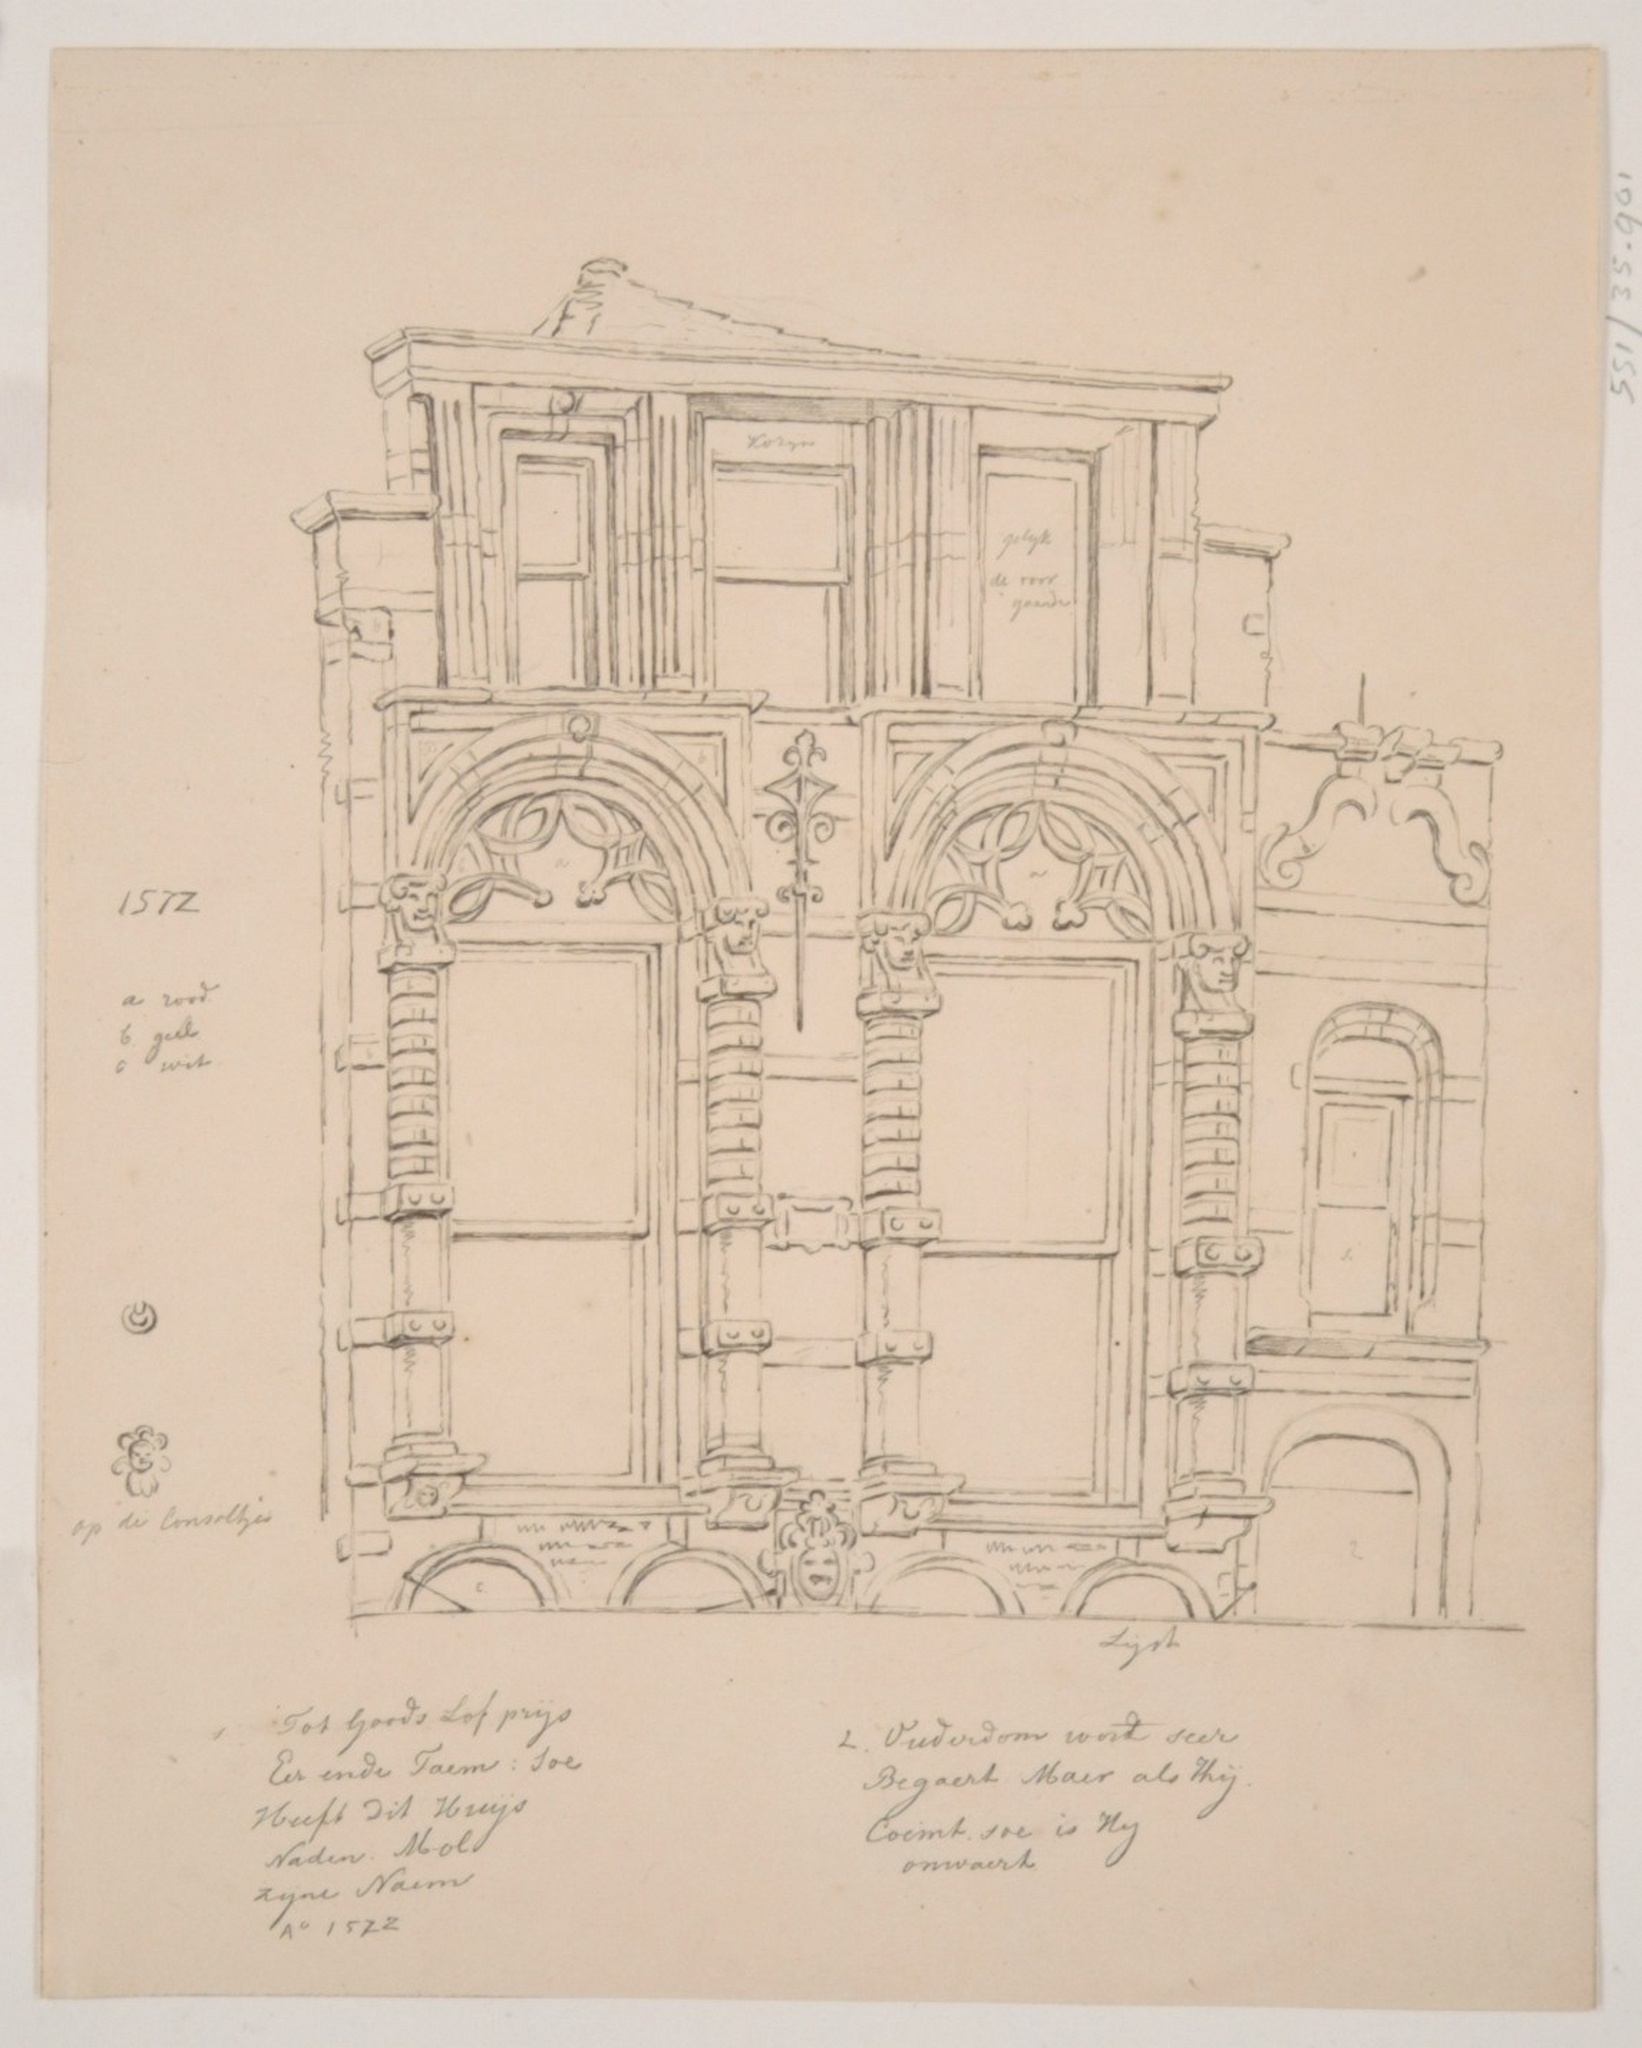 551/35.901
Kozyn
gelyk
de voor
gaande
b
a
1572
a rood
b geel
c wit
1.
2
op de Consoltjes
c.
Lijst
1 Tot Goods Lof prijs
Eer ende Faem: soe
Heeft Dit Huijs
Naden. Mol
zyne Naem
Ao 1572
2. Ouderdom wordt seer
Begaert Maer als Hij.
Coemt. soe is Hy
onwaert